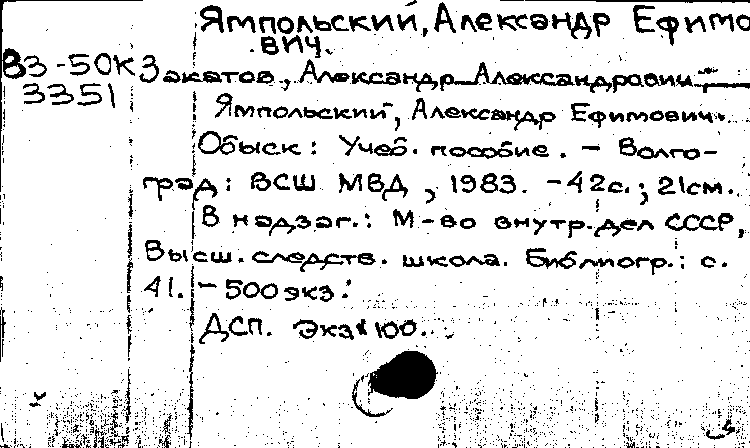 Ямпольский, Александр Ефимо
вич.
83-50К Закатов, Александр Александрович;
3351
Ямпольский, Александр Ефимович.
Обыск: Учеб. пособие. - Волго-
град: ВСШ МВД, 1983. - 42с.; 21см.
В надзаг.: М-во внутр. дел СССР,
Высш. следств. школа. Библиогр.: с.
41. - 500 экз.
ДСП. Экз 100.